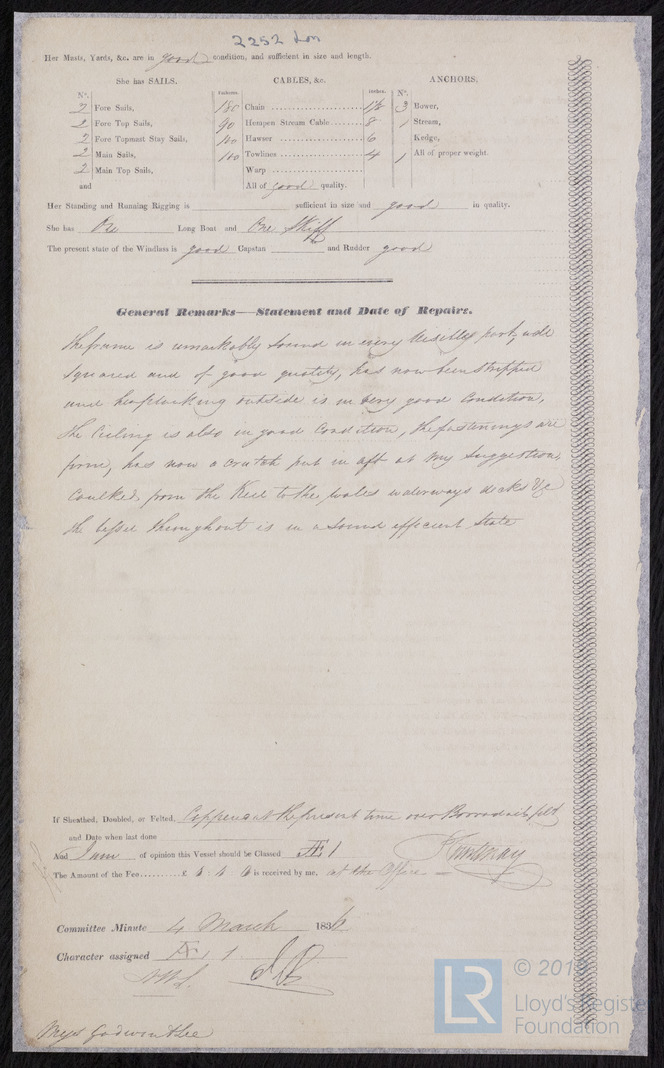 2252 Lon
Her Masts, Yards, &c. are in good condition, and sufficient in size and length.
She has SAILS. CABLES, &c. ANCHORS.
N°. Fathoms. Inches. N°.
2 Fore Sails, 180 Chain 3 Bower,
2 Fore Top Sails, 90 Hempen Stream Cable 8 1 Stream,
2 Fore Topmast Stay Sails, Hawser 6 Kedge,
2 Main Sails, Towlines 4 1 All of proper weight.
2 Main Top Sails, Warp
and All of good quality.
Her Standing and Running Rigging is sufficient in size and good in quality.
She has One Long Boat and One Skiff
The present state of the Windlass is good Capstan and Rudder good
General Remarks—Statement and Date of Repairs.
The frame is remarkably sound in every part, well
squared and of good quality, has now been stripped
and her planking outside is in very good Condition,
the Ceiling is also in good Condition, the fastenings are
firm, has now a crutch put in aft at my suggestion,
Caulked from the Keel to the wales waterways decks &c
the vessel throughout is in a sound efficient State
If Sheathed, Doubled, or Felted, Coppered at the present time over felt
and Date when last done
And I am of opinion this Vessel should be Classed Æ 1
The Amount of the Fee £ is received by me, at the Office
Committee Minute 4 March 1836
Character assigned Æ 1
© 2019
LR
Lloyd's Registe
Foundation